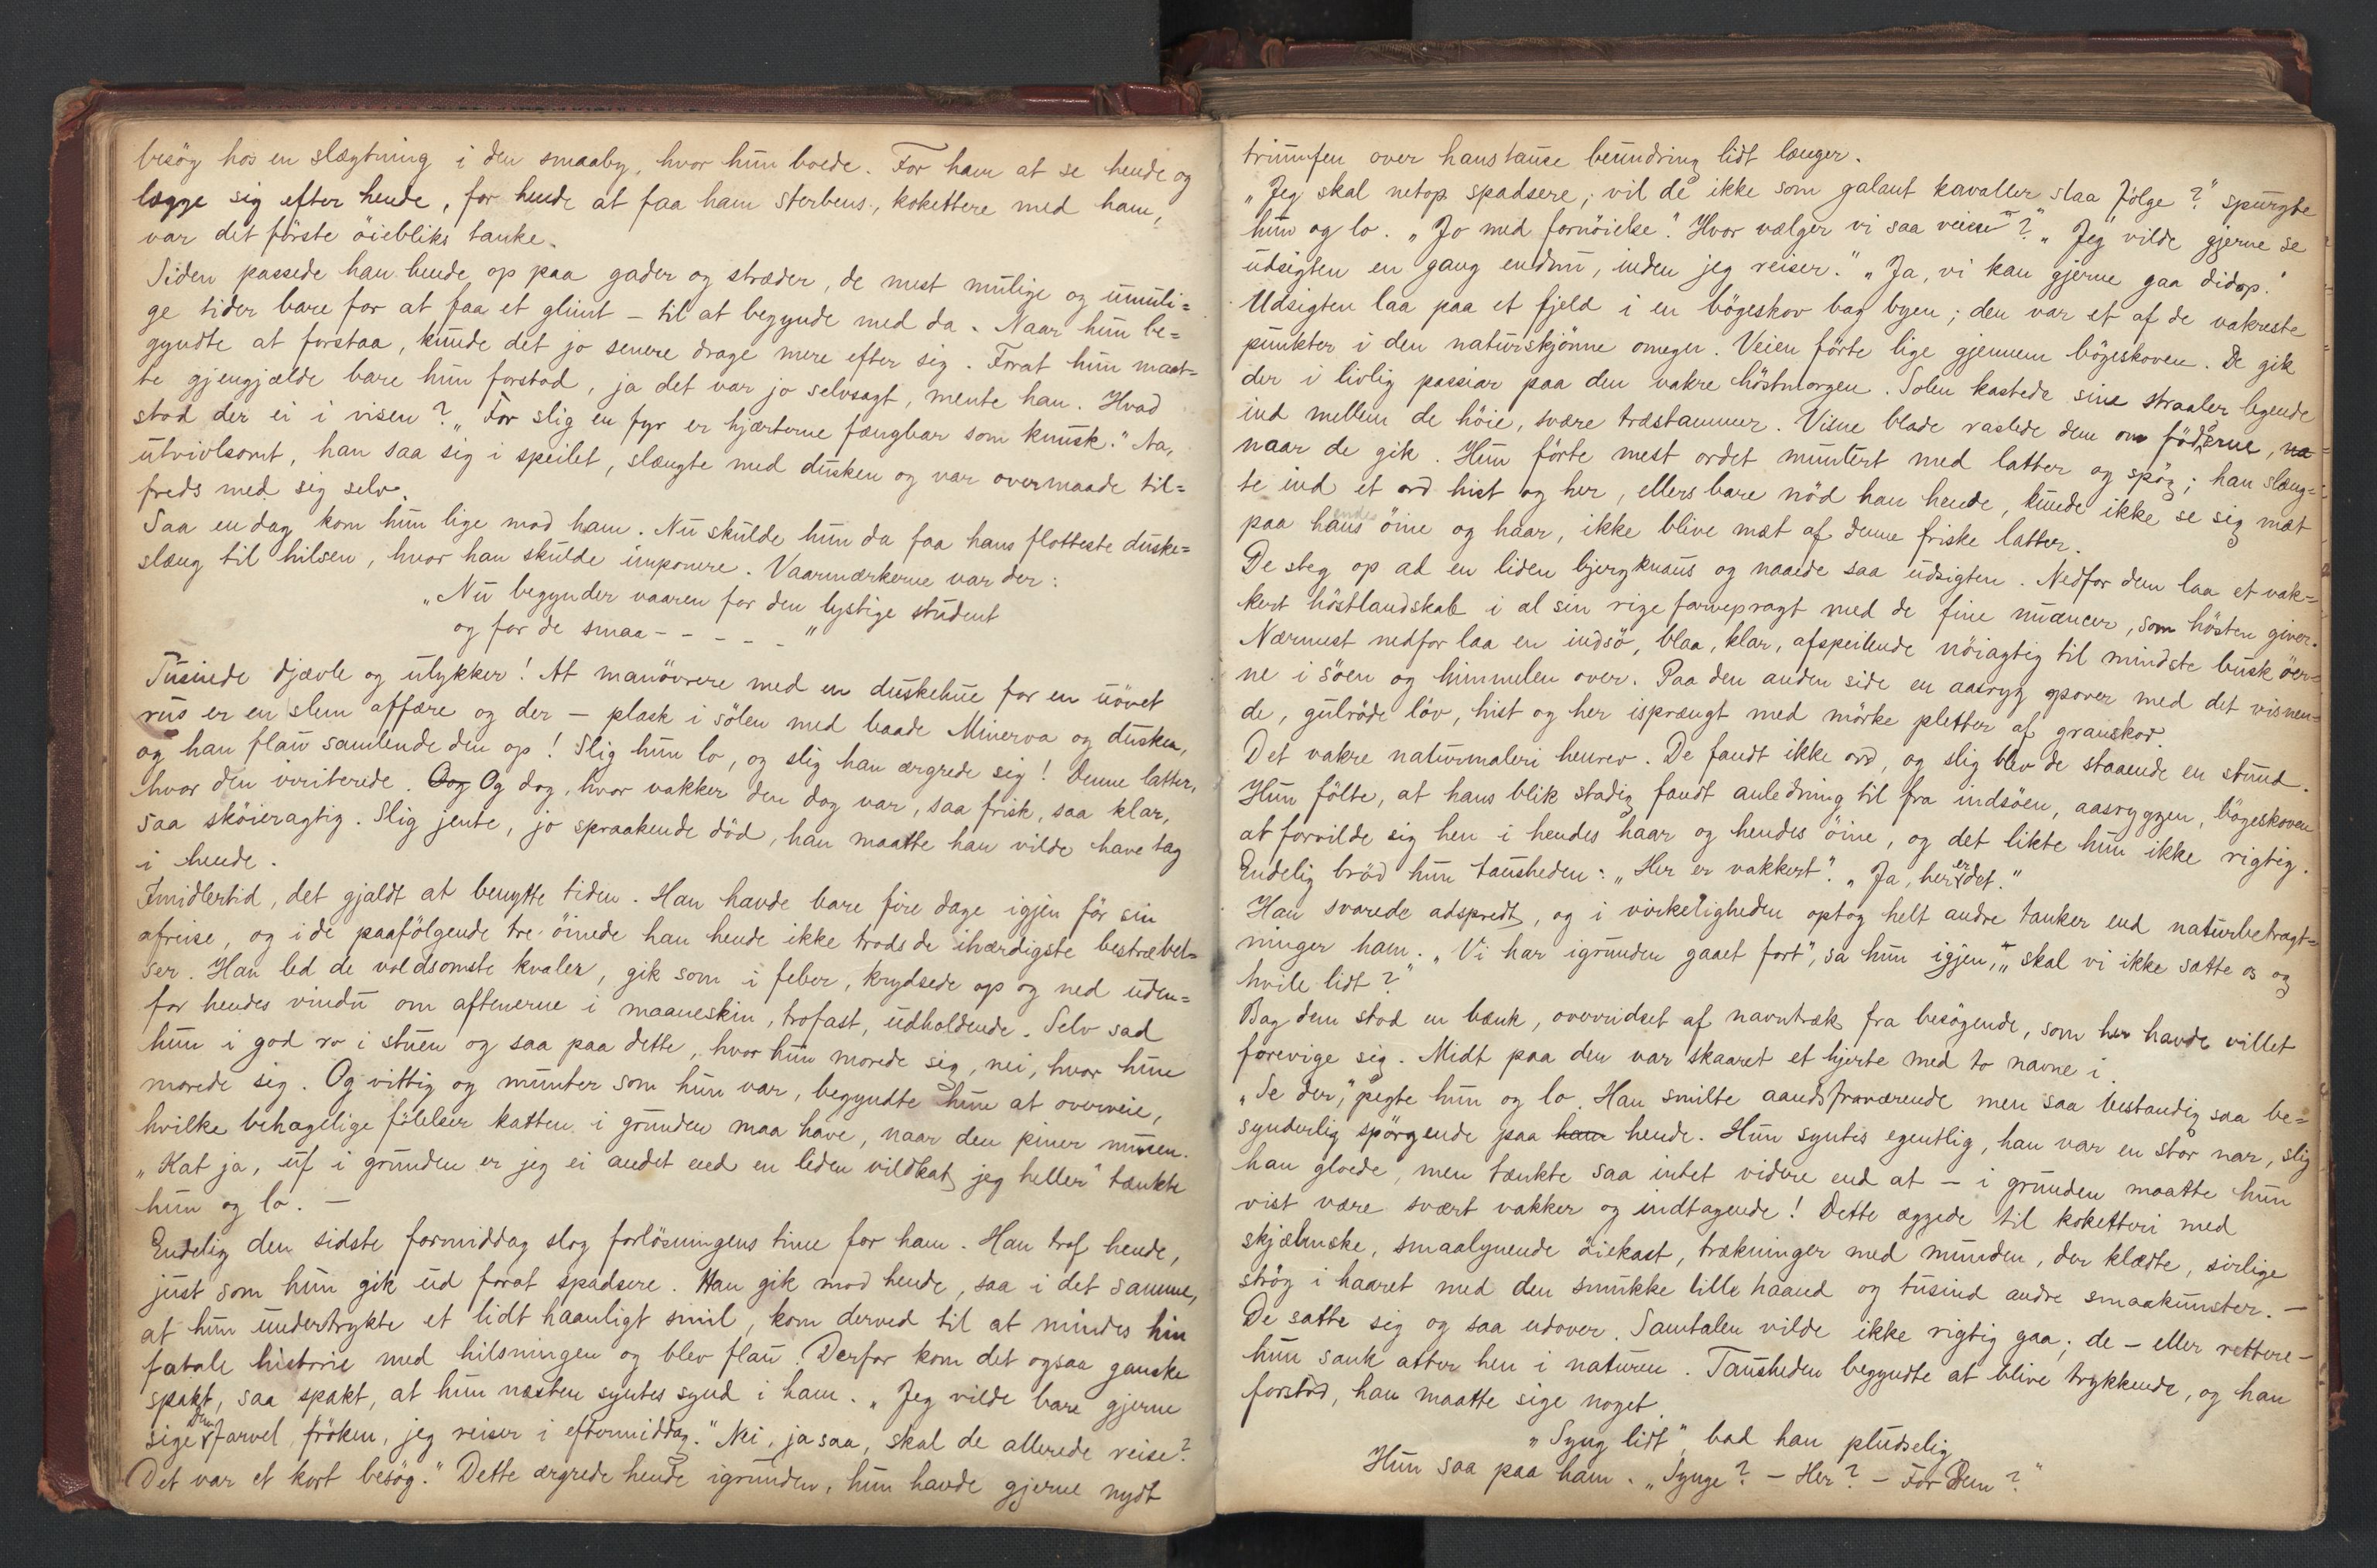 besög hos en slægtning i den smaaby, hvor hun boede. For ham at se hende og
lægge sig efter hende, for hende at faa ham sterbens, kokettere med ham,
var det förste öiebliks tanke.
Siden passede han hende op paa gader og stræder, de mest mulige og umuli=
ge tider bare for at faa et glimt – til at begynde med da. Naar hun be=
gyndte at forstaa, kunde det jo senere drage mere efter sig. Forat hun maat=
te gjengjælde bare hun forstod, ja det var jo selvsagt, mente han. Hvad
stod der ei i visen? „For slig en fyr er hjærterne fængbar som knusk." Na,
utvivlsomt, han saa sig i speilet, slængte med dusken og var overmaade til=
freds med sig selv.
Saa en dag kom hun lige mod ham. Nu skulde hun da faa hans flotteste duske=
slæng til hilsen, hvor han skulde imponere. Vaarmærkerne var der:
„Nu begynder vaaren for den lystige student
og for de smaa - - - - - "
Tusinde djævle og ulykker! At manövrere med en duskehue for en uövet
rus er en slem affære og der – plask i sölen med baade Minerva og dusken,
og han flau samlende den op! Slig hun lo, og slig han ærgrede sig! Denne latter,
hvor den irriterede. Oog Og dog, hvor vakker den dog var, saa frisk, saa klar,
saa sköieragtig. Slig jente, jo spraakende död, han maatte han vilde have tag
i hende.
Imidlertid, det gjaldt at benytte tiden. Han havde bare fire dage igjen för sin
afreise, og i de paafölgende tre öinede han hende ikke trods de ihærdigste bestræbel=
ser. Han led de voldsomste kvaler, gik som i feber, krydsede op og ned uden=
for hendes vindu om aftenerne i maaneskin, trofast, udholdende. Selv sad
hun i god ro i stuen og saa paa dette, hvor hun morede sig, nei, hvor hun
morede sig. Og vittig og munter som hun var, begyndte hun at overveie,
hvilke behagelige fölelser katten i grunden maa have, naar den piner musen.
„Kat ja, uf i grunden er jeg ei andet end en leden vildkat jeg heller" tænkte
hun og lo. —
Endelig den sidste formiddag slog forlösningens time for ham. Han traf hende,
just som hun gik ud forat spadsere. Han gik mod hende, saa i det samme,
at hun undertrykte et lidt haanligt smil, kom derved til at mindes hin
fatale historie med hilsningen og blev flau. Derfor kom det ogsaa ganske
spakt, saa spakt, at hun næsten syntes synd i ham. „Jeg vilde bare gjerne
sige Dem farvel, fröken, jeg reiser i eftermiddag." Nei, ja saa, skal de allerede reise?
Det var et kort besög." Dette ærgrede hende igrunden, hun havde gjerne nydt
triumfen over hans tause beundring lidt længer.
„Jeg skal netop spadsere; vil de ikke som galant kavaller slaa fölge?" spurgte
hun og lo. „Jo med fornöielse". Hvor vælger vi saa veien?" „Jeg vilde gjerne se
udsigten en gang endnu, inden jeg reiser." „Ja, vi kan gjerne gaa didop."
Udsigten laa paa et fjeld i en bögeskov bag byen; den var et af de vakreste
punkter i den naturskjönne omegn. Veien förte lige gjennem bögeskoven. De gik
der i livlig passiar paa den vakre höstmorgen. Solen kastede sine straaler legende
ind mellem de höie, svære træstammer. Visne blade raslede dem om födderne, na
naar de gik. Hun förte mest ordet muntert med latter og spög; han slæng=
te ind et ord hist og her, ellers bare nöd han hende, kunde ikke se sig mæt
paa hans endes öine og haar, ikke blive mæt af denne friske latter.
De steg op ad en liden bjergknaus og naaede saa udsigten. Nedfor dem laa et vak=
kert höstlandskab i al sin rige farvepragt med de fine nuancer, som hösten giver.
Nærmest nedfor laa en indsö, blaa, klar, afspeilende nöiagtig til mindste busk öer=
ne i söen og himmelen over. Paa den anden side en aasryg opover med det visnen=
de, gulröde löv, hist og her isprængt med mörke pletter af granskov.
Det vakre naturmaleri henrev. De fandt ikke ord, og slig blev de staaende en stund.
Hun fölte, at hans blik stadig fandt anledning til fra indsöen, aasryggen, bögeskoven
at forvilde sig hen i hendes haar og hendes öine, og det likte hun ikke rigtig.
Endelig bröd hun tausheden: „Her er vakkert". „Ja, her er det."
Han svarede adspredt, og i virkeligheden optog helt andre tanker end naturbetragt=
ninger ham. „Vi har igrunden gaaet fort", sa hun igjen, „skal vi ikke sætte os og
hvile lidt?"
Bag dem stod en bænk, overridset af navntræk fra besögende, som her havde villet
forevige sig. Midt paa den var skaaret et hjerte med to navne i.
„Se der," pegte hun og lo. Han smilte aandsfraværende men saa bestandig saa be=
synderlig spörgende paa ham hende. Hun syntes egentlig, han var en stor nar, slig
han gloede, men tænkte saa intet videre end at – i grunden maatte hun
vist være svært vakker og indtagende! Dette æggede til koketteri med
skjælmske, smaalynende öiekast, trækninger med munden, der klædte, sirlige
strög i haaret med den smukke lille haand og tusind andre smaakunster. —
De satte sig og saa udover. Samtalen vilde ikke rigtig gaa; de – eller rettere –
hun sank atter hen i naturen. Tausheden begyndte at blive trykkende, og han
forstod, han maatte sige noget.
„Syng lidt", bad han pludselig
Hun saa paa ham. „Synge? – Her? – For Dem?"